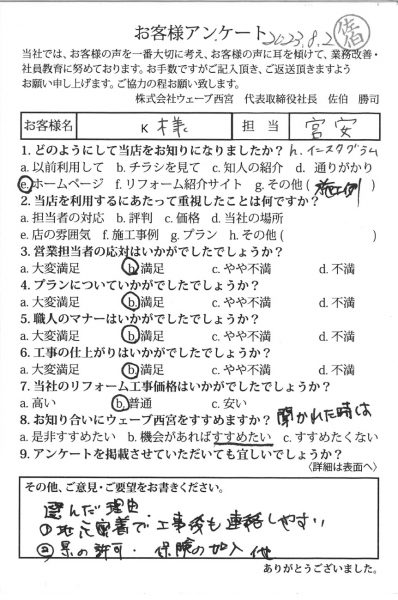 お客様アンケート 2023.8.2 佐伯
当社では、お客様の声を一番大切に考え、お客様の声に耳を傾けて、業務改善・
社員教育に努めております。お手数ですがご記入頂き、ご返送頂きますよう
お願い申し上げます。ご協力の程お願い致します。
株式会社ウェーブ西宮 代表取締役社長 佐伯 勝司
お客様名 K 様 担当 宮安
1. どのようにして当店をお知りになりましたか? h.インスタグラム
a. 以前利用して b. チラシを見て c. 知人の紹介 d. 通りがかり
e. ホームページ f. リフォーム紹介サイト g. その他( 施工例 )
2. 当店を利用するにあたって重視したことは何ですか?
a. 担当者の対応 b. 評判 c. 価格 d. 当社の場所
e. 店の雰囲気 f. 施工事例 g. プラン h. その他( )
3. 営業担当者の応対はいかがでしたでしょうか?
a. 大変満足 b. 満足 c. やや不満 d. 不満
4. プランについていかがでしたでしょうか?
a. 大変満足 b. 満足 c. やや不満 d. 不満
5. 職人のマナーはいかがでしたでしょうか?
a. 大変満足 b. 満足 c. やや不満 d. 不満
6. 工事の仕上がりはいかがでしたでしょうか?
a. 大変満足 b. 満足 c. やや不満 d. 不満
7. 当社のリフォーム工事価格はいかがでしたでしょうか?
a. 高い b. 普通 c. 安い
8. お知り合いにウェーブ西宮をすすめますか? 聞かれた時は
a. 是非すすめたい b. 機会があればすすめたい c. すすめたくない
9. アンケートを掲載させていただいても宜しいでしょうか?
〈詳細は表面へ〉
その他、ご意見・ご要望をお書きください。
選んだ理由.
①地元密着で工事後も連絡しやすい
②県の許可・保険の加入 他
ありがとうございました。